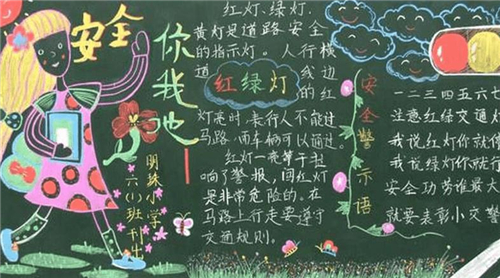 安全
你我他
明珠小学
六(1)班刊出
红灯、绿灯、
黄灯是道路安全
的指示灯。人行横
道
线边
的红
红绿灯
灯亮时,表行人不能过
马路,而车辆可以通过。
红灯一亮等于拉
响了警报,闯红灯
是非常危险的。在
马路上行走要遵守
交通规则。
安全警示语
一二三四五六七
注意红绿交通灯
我说红灯你就停
我说绿灯你就行
安全功劳谁最大
就要表彰小交警